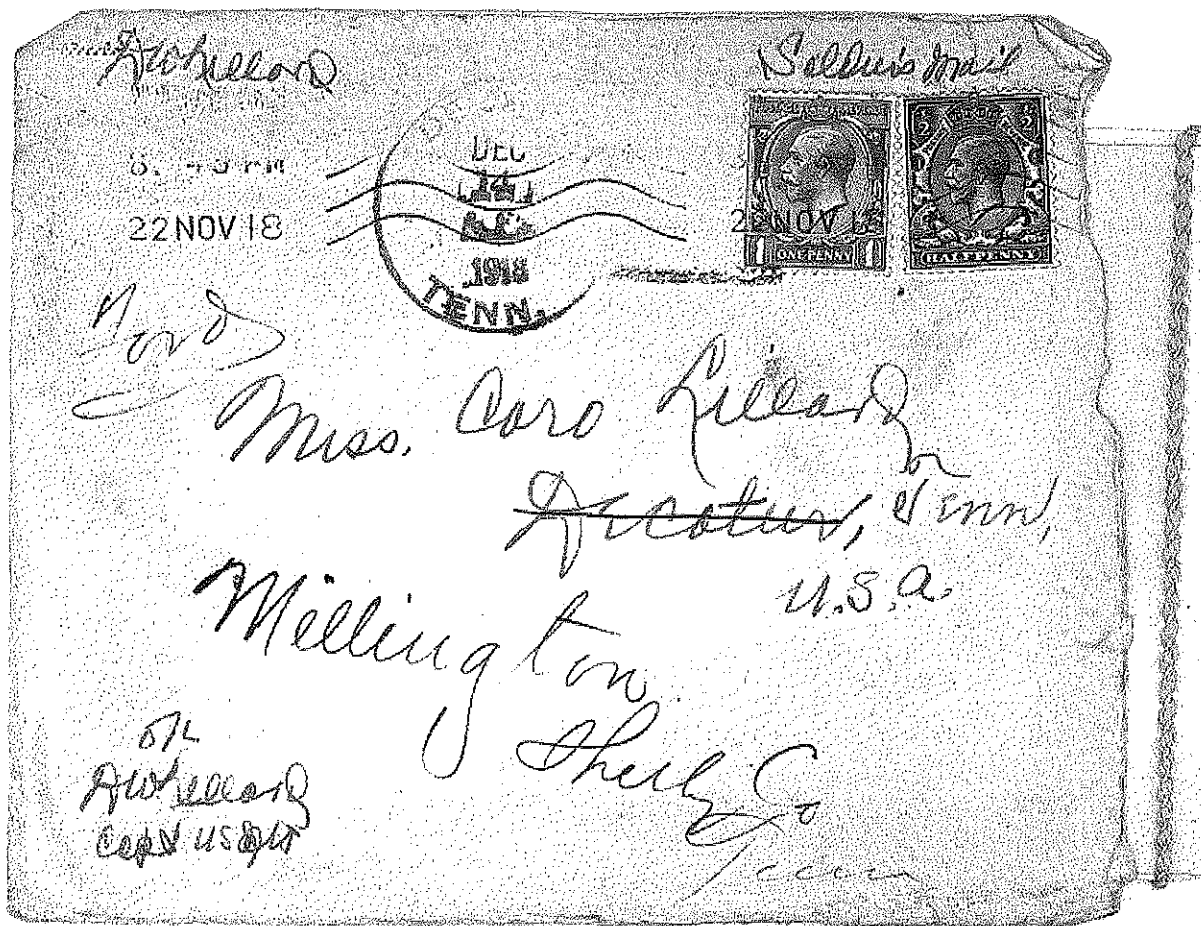 DWLillard
Soldier's Mail
8. 45 PM
22 NOV 18
DEC
14
1918
TENN.
22 NOV 18
1 ONE PENNY 1
2 2
HALFPENNY
Miss. Caro Lillard,
Decatur, Tenn,
U.S.A.
Millington
Shelby Co
Tenn
OK
DWLillard
Capt USA